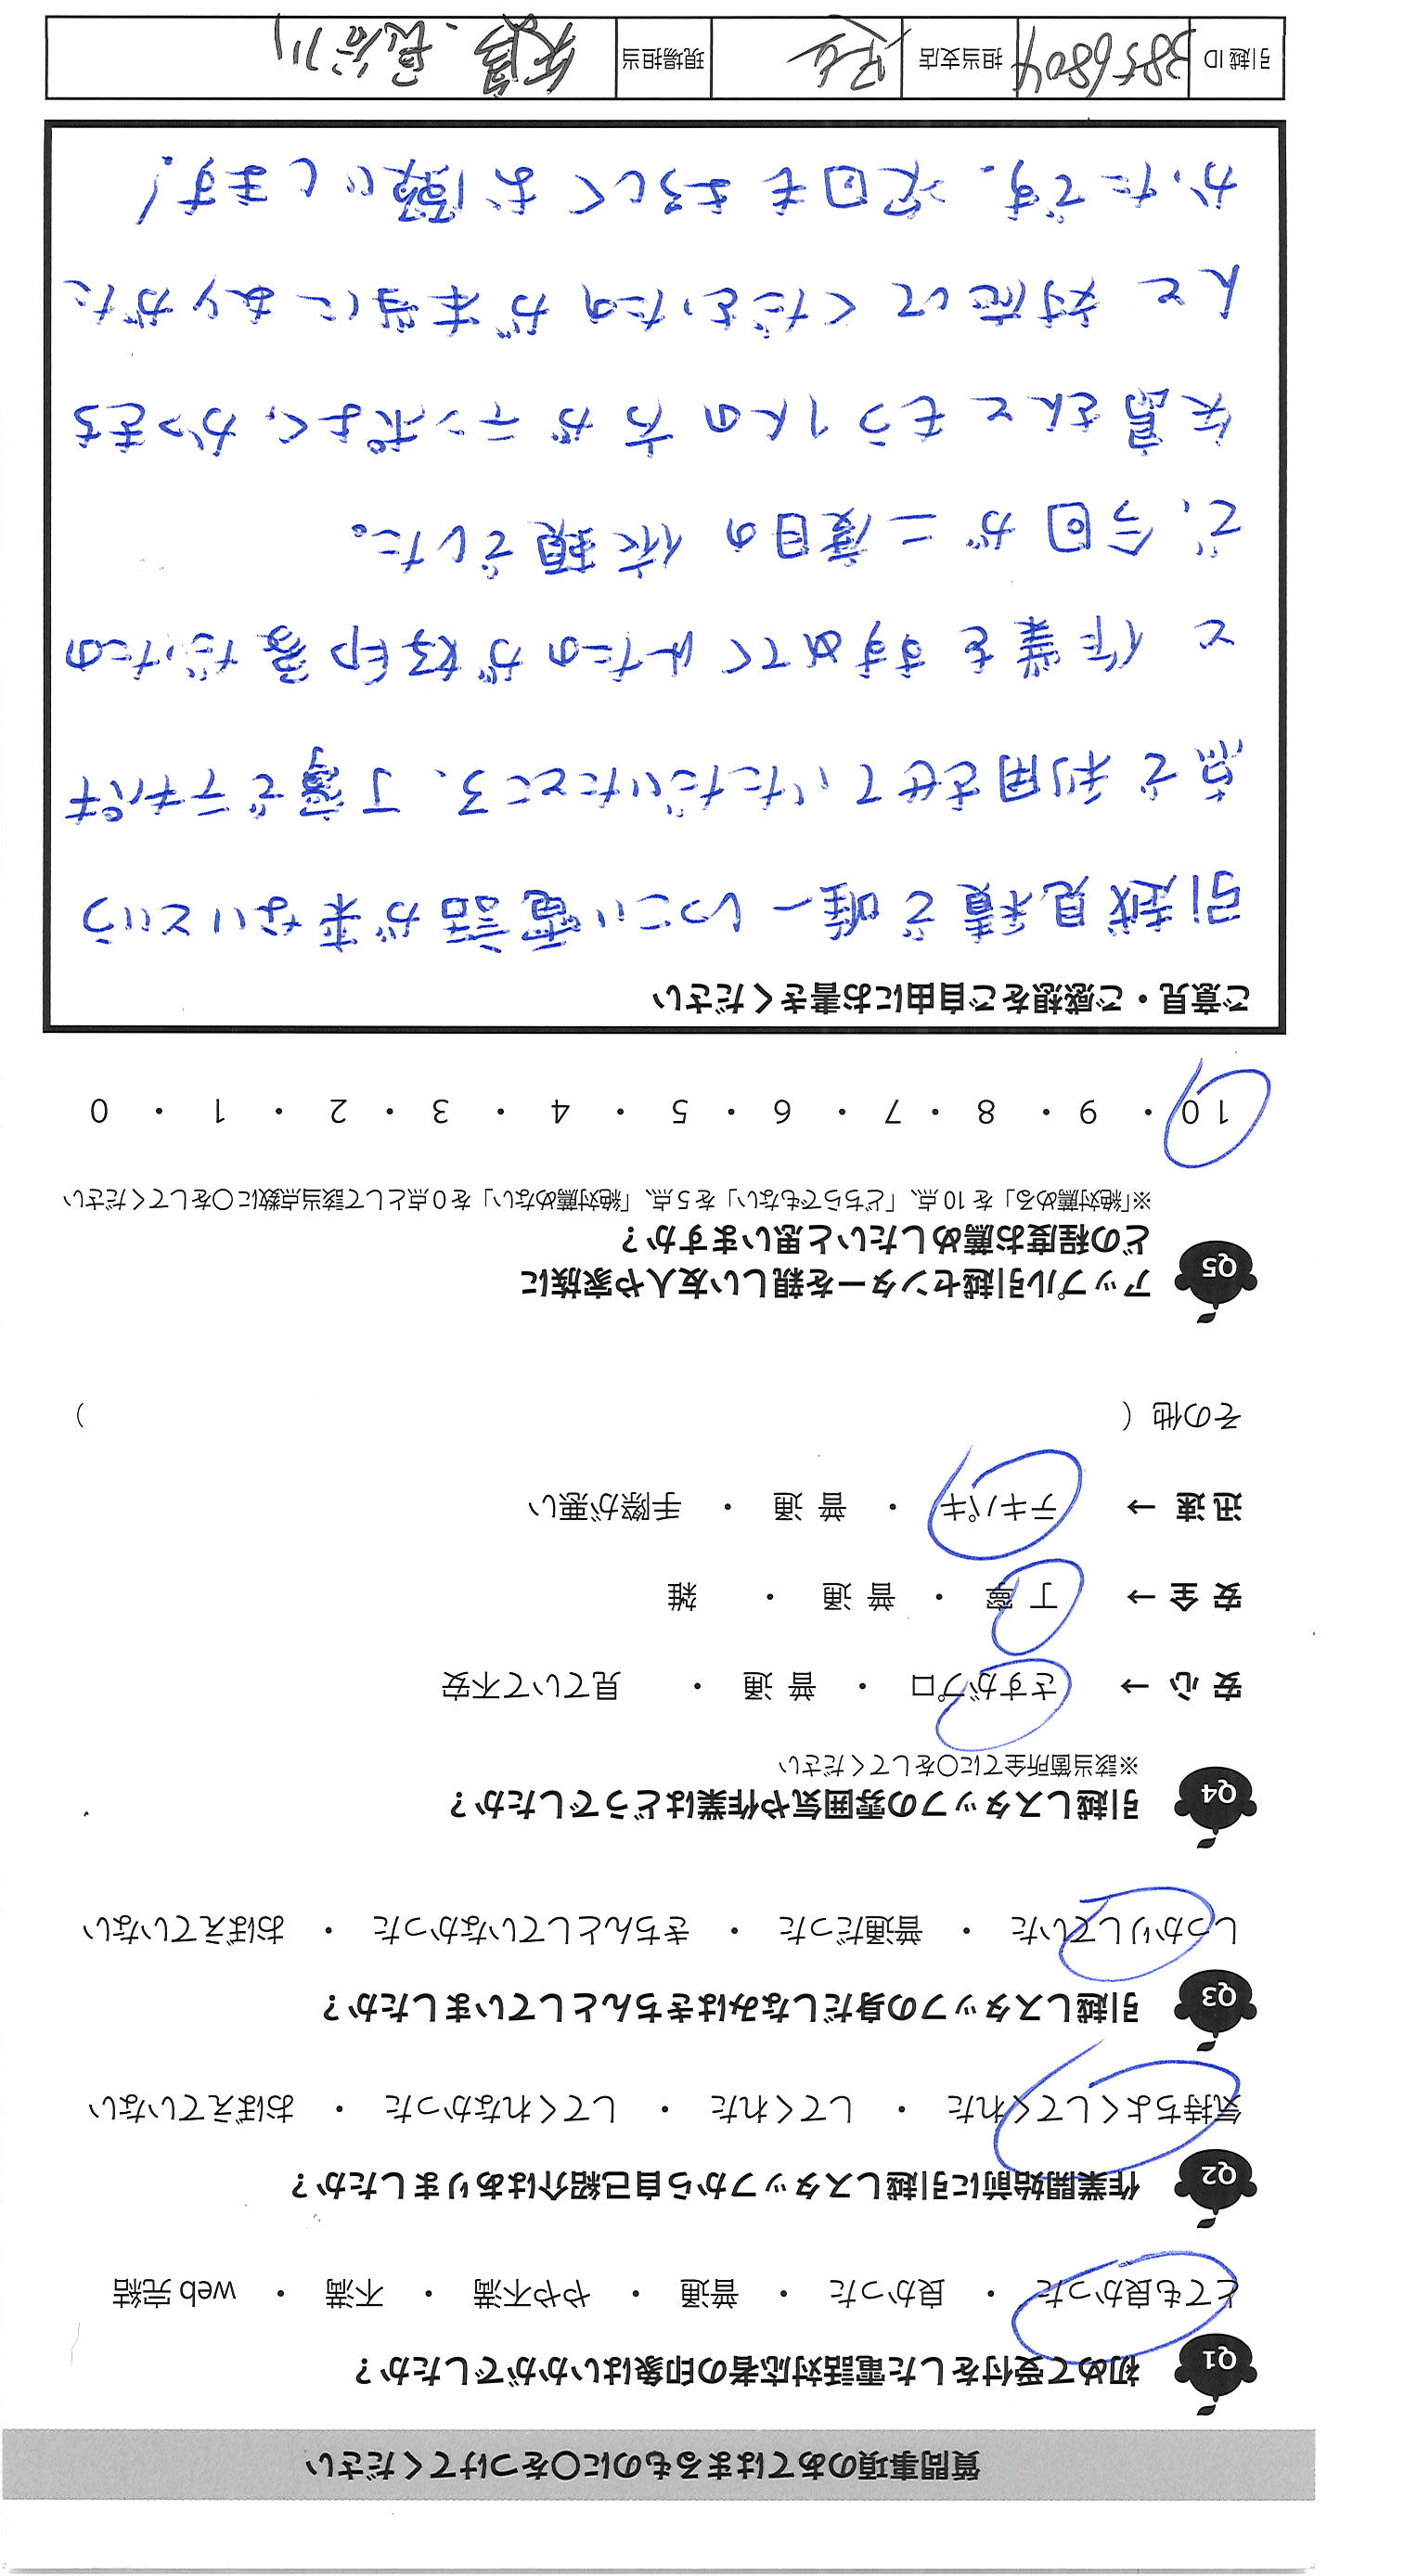 質問事項のあてはまるものに〇をつけてください
Q1 初めて受付をした電話対応者の印象はいかがでしたか？
とても良かった ・ 良かった ・ 普通 ・ やや不満 ・ 不満 ・ web 完結
Q2 作業開始前に引越しスタッフから自己紹介はありましたか？
気持ちよくしてくれた ・ してくれた ・ してくれなかった ・ おぼえていない
Q3 引越しスタッフの身だしなみはきちんとしていましたか？
しっかりしていた ・ 普通だった ・ きちんとしていなかった ・ おぼえていない
Q4 引越しスタッフの雰囲気や作業はどうでしたか？
※該当箇所全てに〇をしてください
安 心 → さすがプロ ・ 普 通 ・ 見ていて不安
安 全 → 丁 寧 ・ 普 通 ・ 雑
迅 速 → テキパキ ・ 普 通 ・ 手際が悪い
その他（ ）
Q5 アップル引越センターを親しい友人や家族に
どの程度お薦めしたいと思いますか？
※「絶対薦める」を 10 点、「どちらでもない」を 5 点、「絶対薦めない」を 0 点として該当点数に〇をしてください
10 ・ 9 ・ 8 ・ 7 ・ 6 ・ 5 ・ 4 ・ 3 ・ 2 ・ 1 ・ 0
ご意見・ご感想をご自由にお書きください
引越見積で唯一しつこい電話が来ないという
点で利用させていただいたところ、丁寧でテキパキ
と作業をすすめてくれたのが好印象だったの
で、今回が二度目の依頼でした。
矢島さんともう1人の方がテンポよく、かつきち
んと対応してくださったのが本当にありがた
かったです。次回もよろしくお願いします！
引越 ID 3856804 担当支店 現場担当 矢島、長谷川